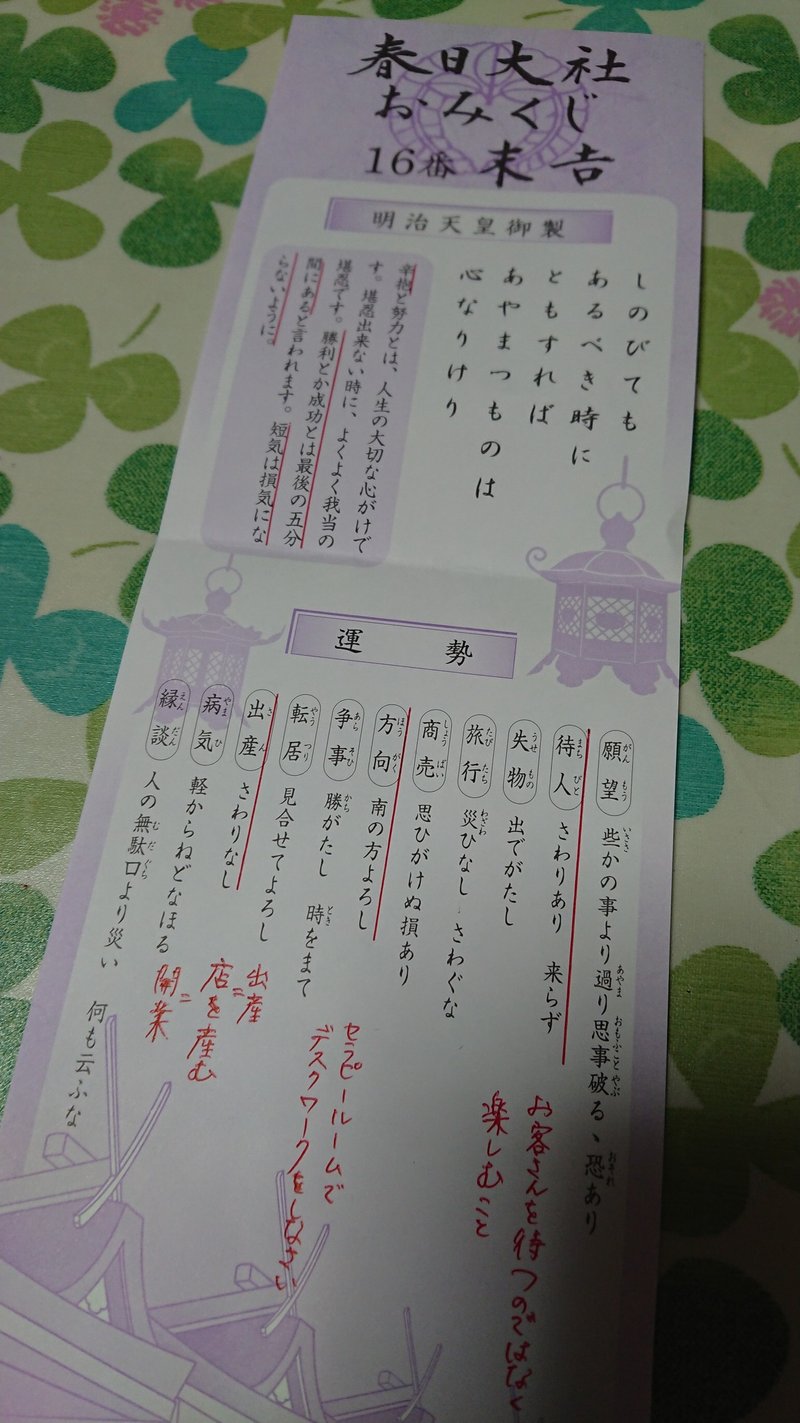 春日大社
おみくじ
16番 末吉
明治天皇御製
しのびても
あるべき時に
ともすれば
あやまつものは
心なりけり
辛抱と努力とは、人生の大切な心がけで
す。堪忍出来ない時に、よくよく我当の
堪忍です。勝利とか成功とは最後の五分
間にあると言われます。短気は損気にな
らないように。
運勢
願望 些かの事より過り思事破るゝ恐あり
待人 さわりあり 来らず
失物 出でがたし
旅行 災ひなし さわぐな
商売 思ひがけぬ損あり
方向 南の方よろし
争事 勝がたし 時をまて
転居 見合せてよろし
出産 さわりなし
病気 軽からねどなほる
縁談 人の無駄口より災い 何も云ふな
お客さんを待つのではなく
楽しむこと
セラピールームで
デスクワークをしなさい
出産
=
店を産む
=
開業